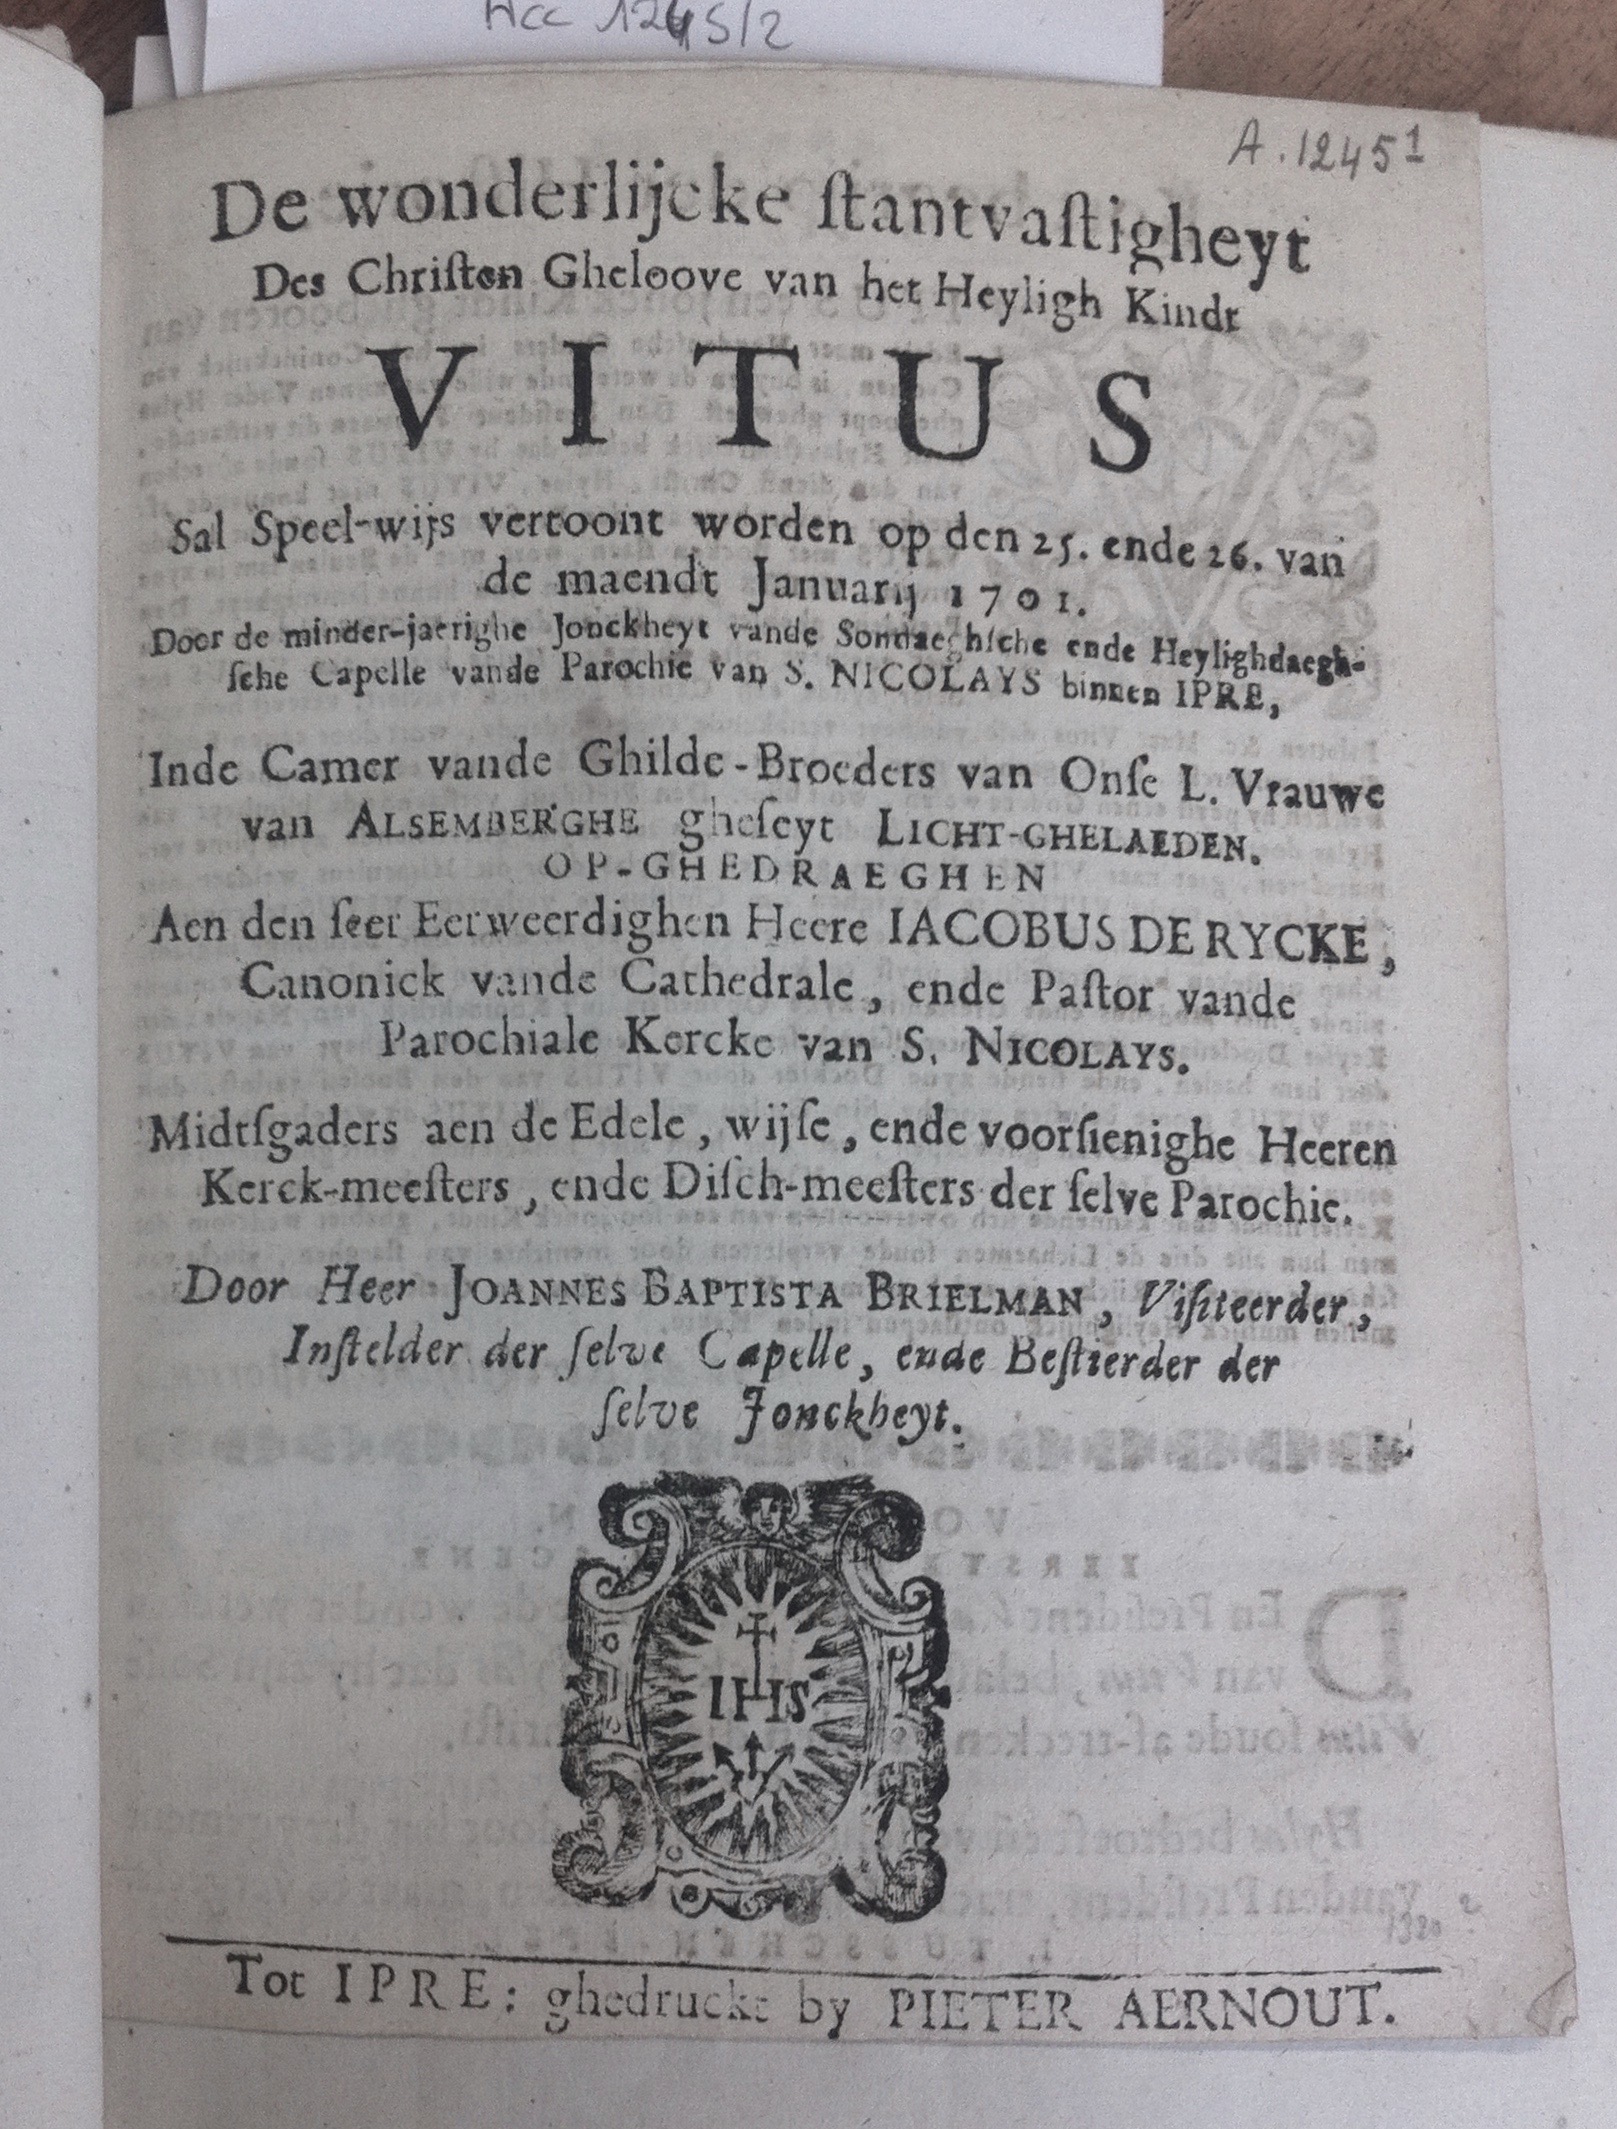 Acc 1245/2
A. 12451
De wonderlijcke ſtantvaſtigheyt
Des Chriſten Gheloove van het Heyligh Kindt
VITUS
Sal Speel-wijs vertoont worden op den 25. ende 26. van
de maendt Januarij 1701.
Door de minder-jaerighe Jonckheyt vande Sondaeghſche ende Heylighdaegh-
ſche Capelle vande Parochie van S. NICOLAYS binnen IPRE,
Inde Camer vande Ghilde-Broeders van Onſe L. Vrauwe
van ALSEMBERGHE gheſeyt LICHT-GHELAEDEN.
OP-GHEDRAEGHEN
Aen den ſeer Eerweerdighen Heere IACOBUS DE RYCKE,
Canonick vande Cathedrale, ende Paſtor vande
Parochiale Kercke van S. NICOLAYS.
Midtſgaders aen de Edele, wijſe, ende voorſienighe Heeren
Kerck-meeſters, ende Diſch-meeſters der ſelve Parochie.
Door Heer JOANNES BAPTISTA BRIELMAN, Viſiteerder,
Inſtelder der ſelve Capelle, ende Beſtierder der
ſelve Jonckheyt.
IHS
1320
Tot IPRE: ghedruckt by PIETER AERNOUT.